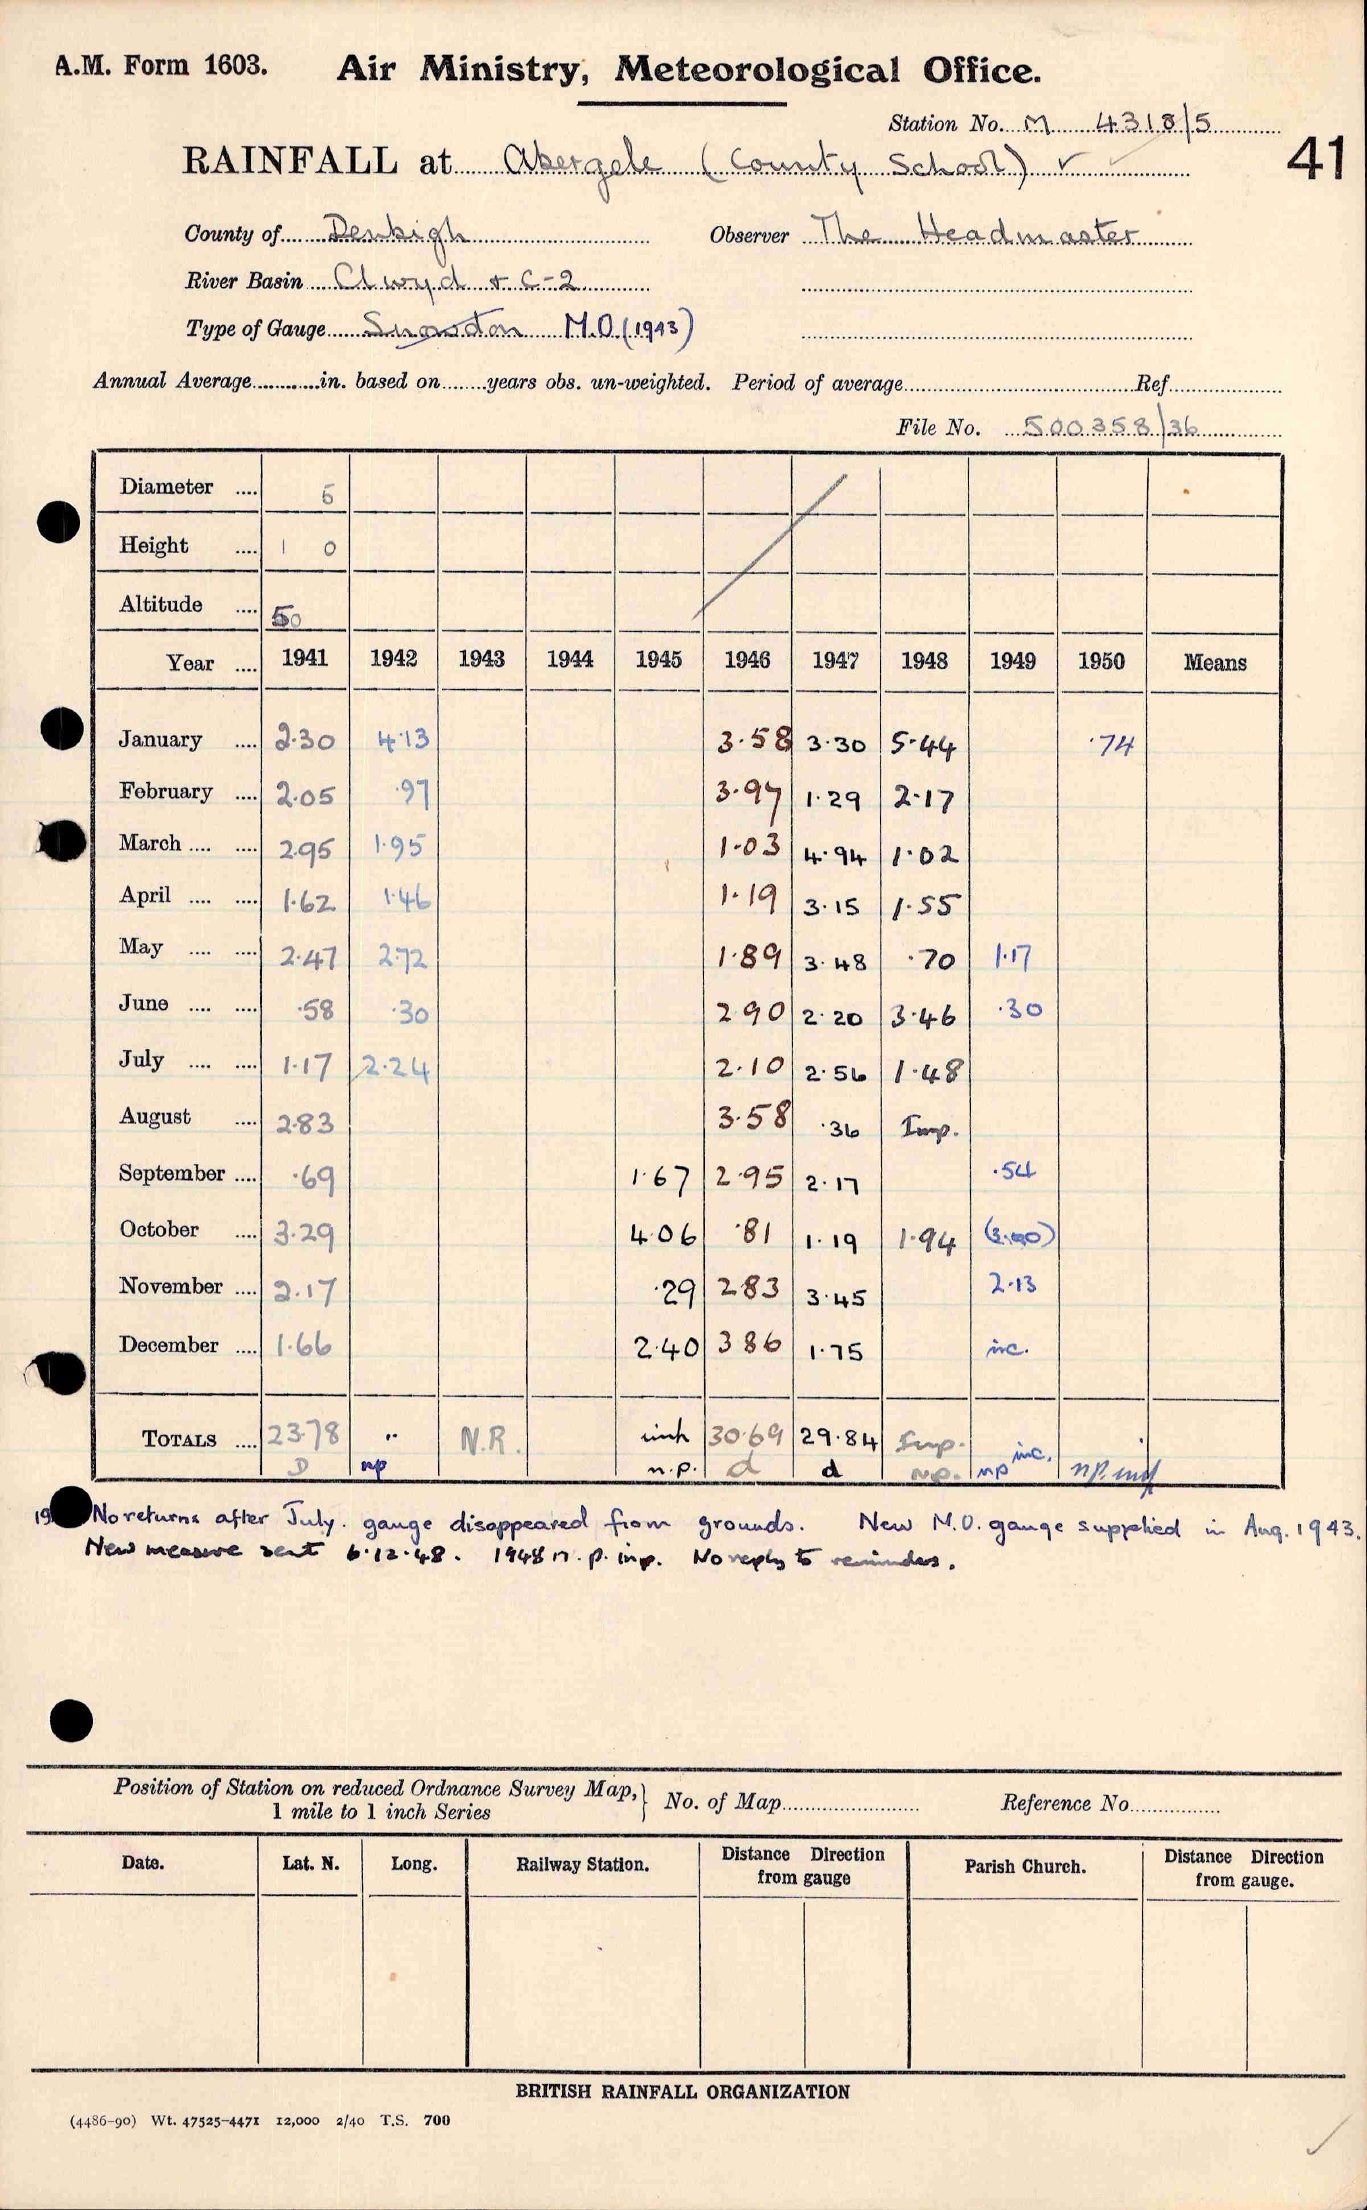 A.M. Form 1603. Air Ministry, Meteorological Office.
Station No. M 4318/5
RAINFALL at Abergele (County School) ✓ 41
County of Denbigh Observer The Headmaster
River Basin Clwyd + C-2
Type of Gauge Snowdon M.O (1943)
Annual Average in. based on years obs. un-weighted. Period of average Ref
File No. 500358/36
Diameter .... 5
Height .... 1 0
Altitude .... 50
Year .... 1941 1942 1943 1944 1945 1946 1947 1948 1949 1950 Means
January .... 2.30 4.13 3.58 3.30 5.44 .74
February .... 2.05 .97 3.97 1.29 2.17
March .... .... 2.95 1.95 1.03 4.94 1.02
April .... .... 1.62 1.46 1.19 3.15 1.55
May .... .... 2.47 2.72 1.89 3.48 .70 1.17
June .... .... .58 .30 2.90 2.20 3.46 .30
July .... .... 1.17 2.24 2.10 2.56 1.48
August .... 2.83 3.58 .36 Imp.
September .... .69 1.67 2.95 2.17 .54
October .... 3.29 4.06 .81 1.19 1.94
November .... 2.17 .29 2.83 3.45 2.13
December .... 1.66 2.40 3.86 1.75 inc.
TOTALS .... 23.78 .. N.R. 30.69 29.84 Imp. inc.
D np n.p. d d n.p. np n.p.
No returns after July. gauge disappeared from grounds. New M.O. gauge supplied in Aug. 1943.
New measure sent 6.12.48. 1948 n.p. inp. No reply to reminders.
Position of Station on reduced Ordnance Survey Map, } No. of Map Reference No.
1 mile to 1 inch Series
Date. Lat. N. Long. Railway Station. Distance Direction from gauge Parish Church. Distance Direction from gauge.
BRITISH RAINFALL ORGANIZATION
(4486-90) Wt. 47525-4471 12,000 2/40 T.S. 700